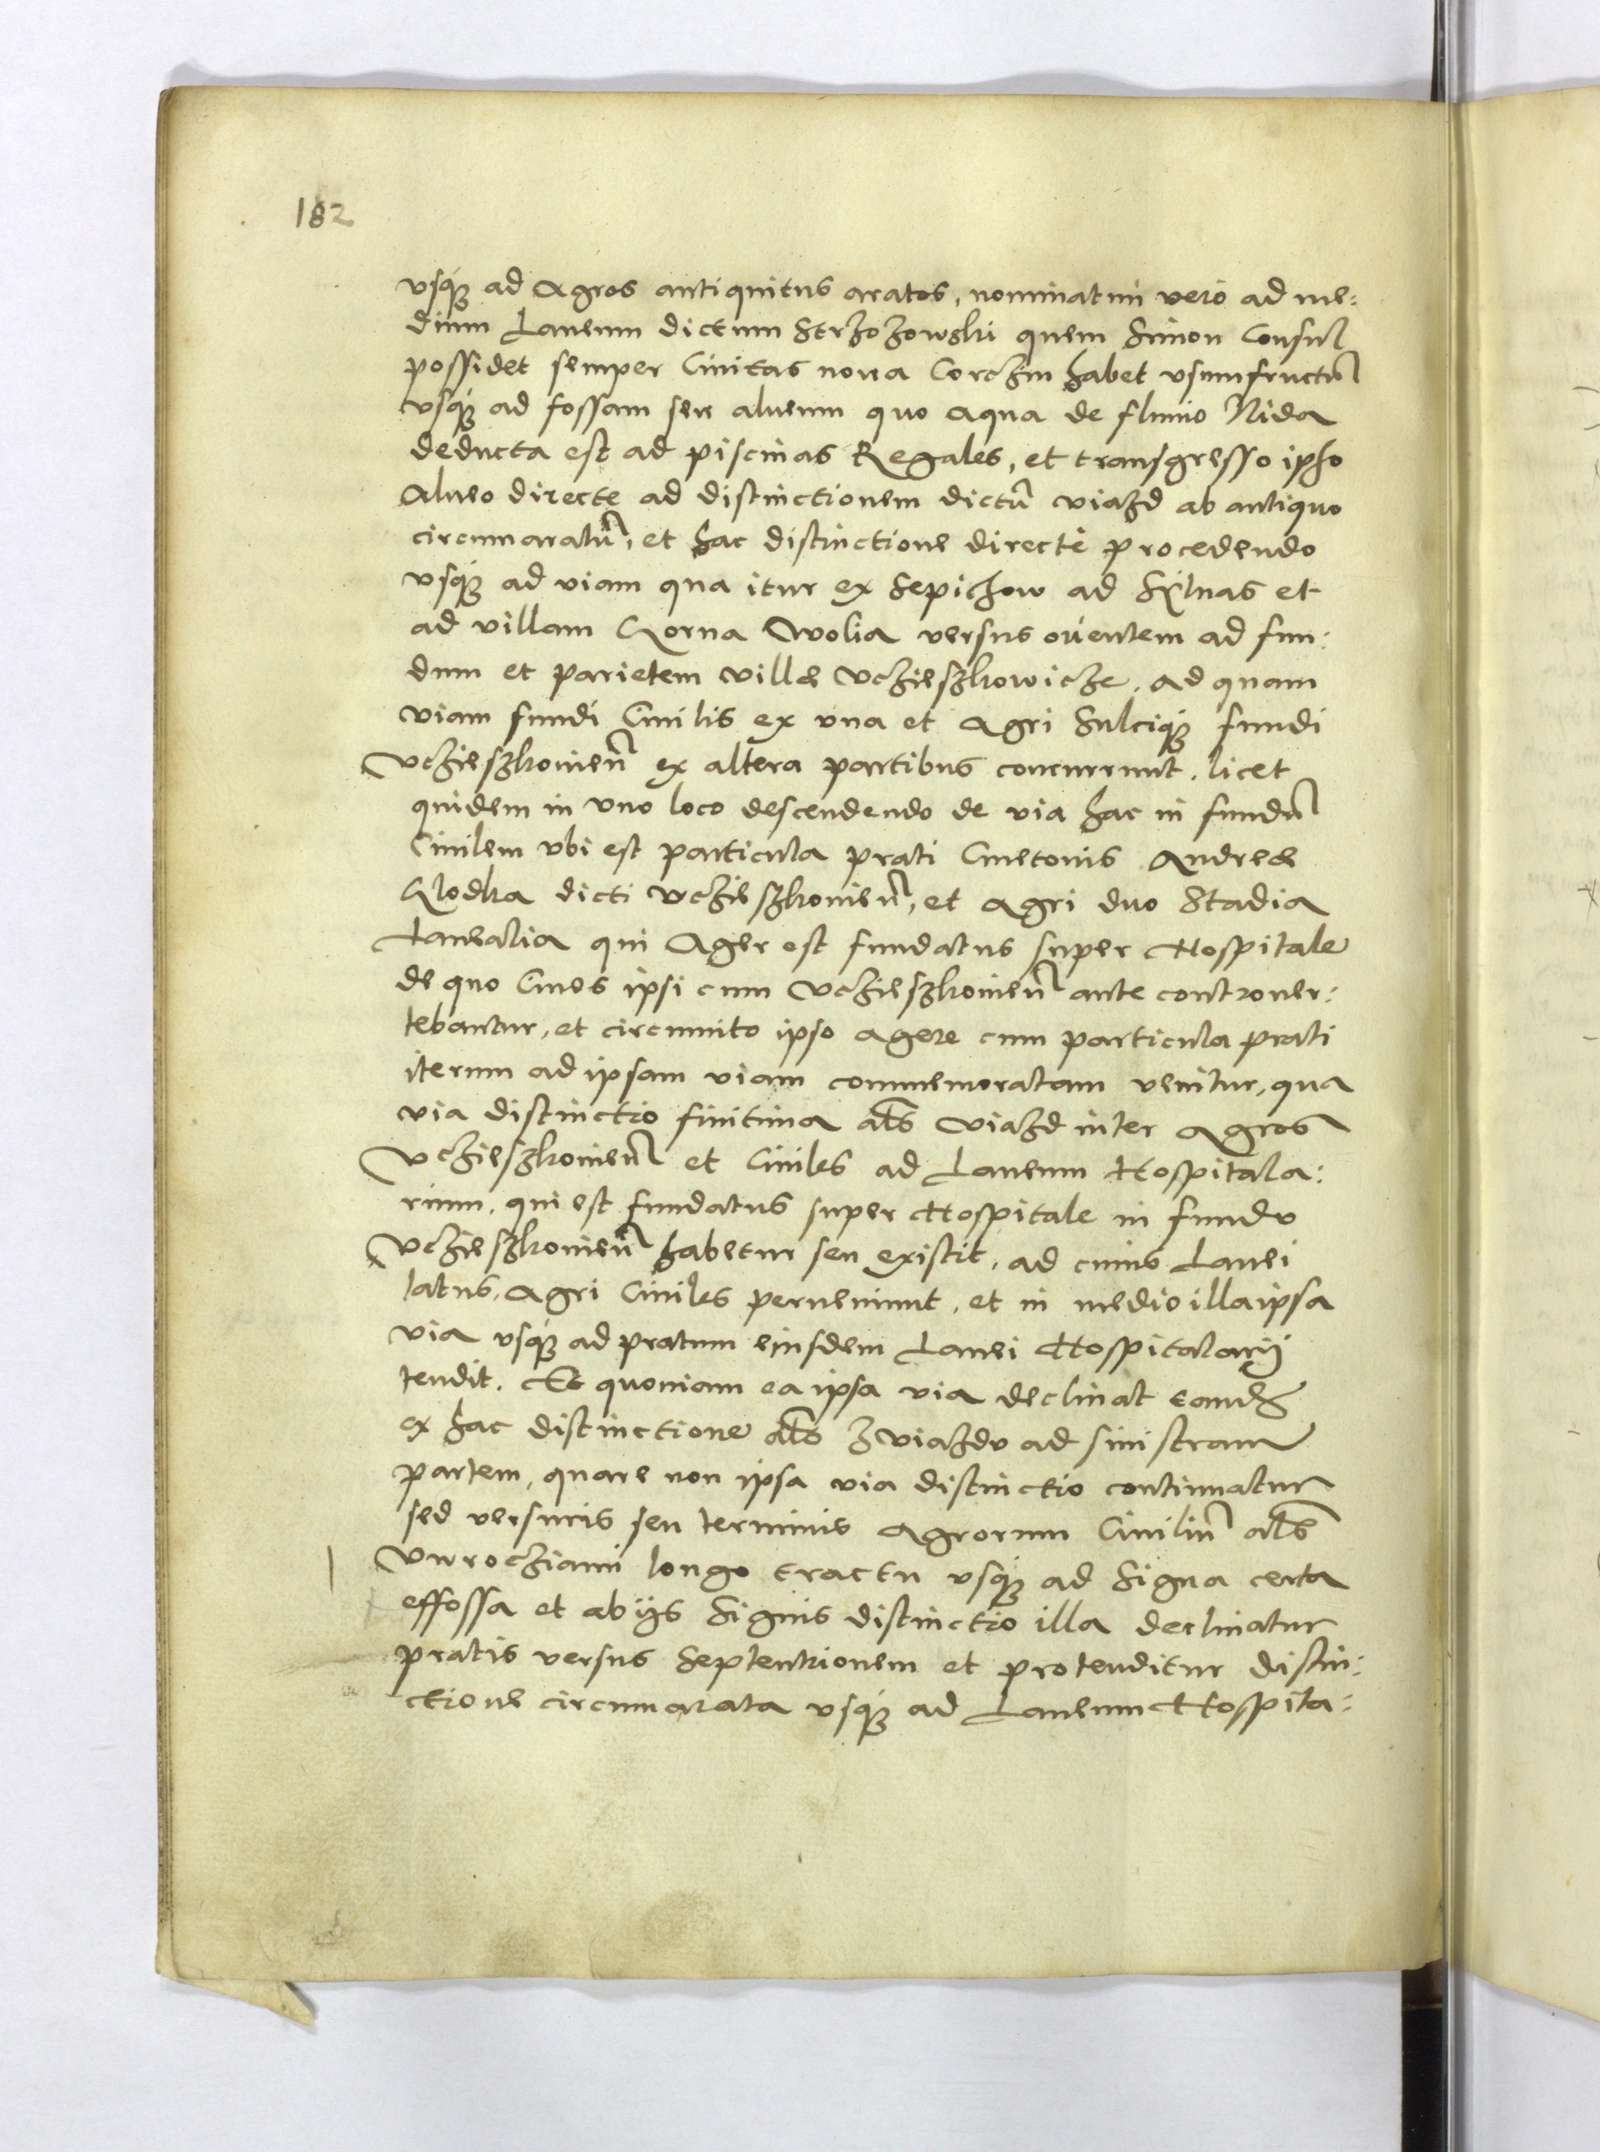 182
vsq̃ ad Agros antiquitus aratos, nominatim vero ad me:
dium Laneum dictum Strzozowski quem Simon Consul
possidet semper Ciuitas noua Corczin habet vsumfructũ
vsq̃ ad fossam seu alueum quo aqua de fluuio Nida
deducta est ad piscinas Regales, et transgresso ipso
Alueo directe ad distinctionem dictũ viazd ab antiquo
circumaratũ, et hac distinctione directe procedendo
vsq̃ ad viam qua itur ex Sepichow ad Syluas et
ad villam Czorna Wolia versus orientem ad fun:
dum et parietem villæ Vczieszkowicze. ad quam
viam fundi Ciuilis ex vna et Agri Sulciq̃ fundi
Vczieszkouieñ ex altera partibus concurrunt. licet
quidem in vno loco descendendo de via hac in fundũ
Ciuilem vbi est particula prati Cmetonis Andreæ
Klodka dicti Vczieszkouieñ, et Agri duo Stadia
Lanealia qui Ager est fundatus super Hospitale
de quo Ciues ipsi cum Vczieszkouieñ ante controuer:
tebantur, et circumito ipso agere cum particula prati
iterum ad ipsam viam commemoratam venitur, qua
via distinctio finitima als̃ viazd inter Agros
Vczieszkouieñ et Ciuiles ad Laneum Hospitala:
rium, qui est fundatus super Hospitale in fundo
Vczieszkouieñ habetur seu existit, ad cuius Lanei
latus, Agri Ciuiles perueniunt, et in medio illa ipsa
via vsq̃ ad pratum eiusdem Lanei Hospitalarij
tendit. Et quoniam ea ipsa via declinat tandẽ
ex hac distinctione als̃ zviazdu ad sinistram
partem, quare non ipsa via distinctio continuatur
sed versuris seu terminis Agrorum Ciuiliũ als̃
Vwrocziami longo tractu vsq̃ ad Signa certa
effossa et ab ijs Signis distinctio illa declinatur
pratis versus Septentrionem et protenditur distin:
ctione circumarata vsq̃ ad Laneum Hospita: